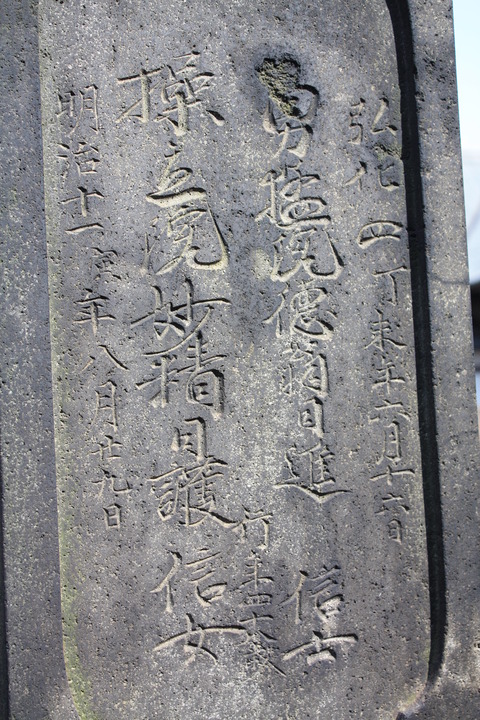 弘化四丁未年六月十六日
勇猛院德翁日進信士
行年四十六歳
操立院妙精日護信女
明治十一寅年八月廿九日